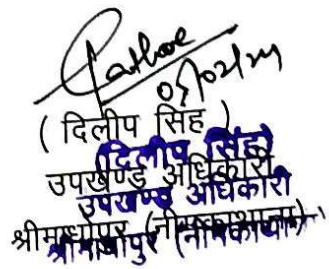 05/02/24
( दिलीप सिंह )
(दिलीप सिंह)
उपखण्ड अधिकारी
उपखण्ड अधिकारी
श्रीमाधोपुर (नीमकाथाना)
श्रीमाधोपुर (नीमकाथाना)